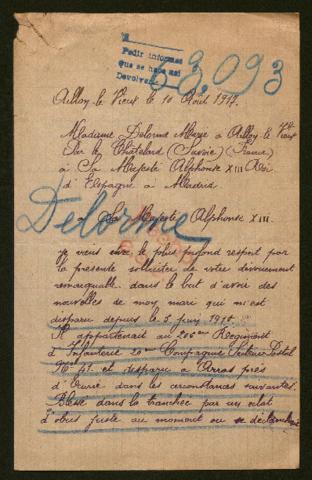 Pedir informes
que se hace así
Devolver
53,093
Aillon le Vieux le 10 Août 1917.
Madame Delorme Marie à Aillon le Vieux
Par le Châtelard (Savoie) (France)
à Sa Majesté Alphonse XIII Roi
d'Espagne à Madrid
Delorme
à Sa Majesté Alphonse XIII.
je viens avec le plus profond respect par
la présente solliciter de votre dévouement
remarquable dans le but d'avoir des
nouvelles de mon mari qui m'est
disparu depuis le 5 juin 1915.
Il appartenait au 205ème Régiment
d'Infanterie 20e Compagnie Secteur Postal
Nº 41. et disparu à Arras près
d'Eurie dans les circonstances suivantes.
Blessé dans la tranchée par un éclat
d'obus juste au moment ou se